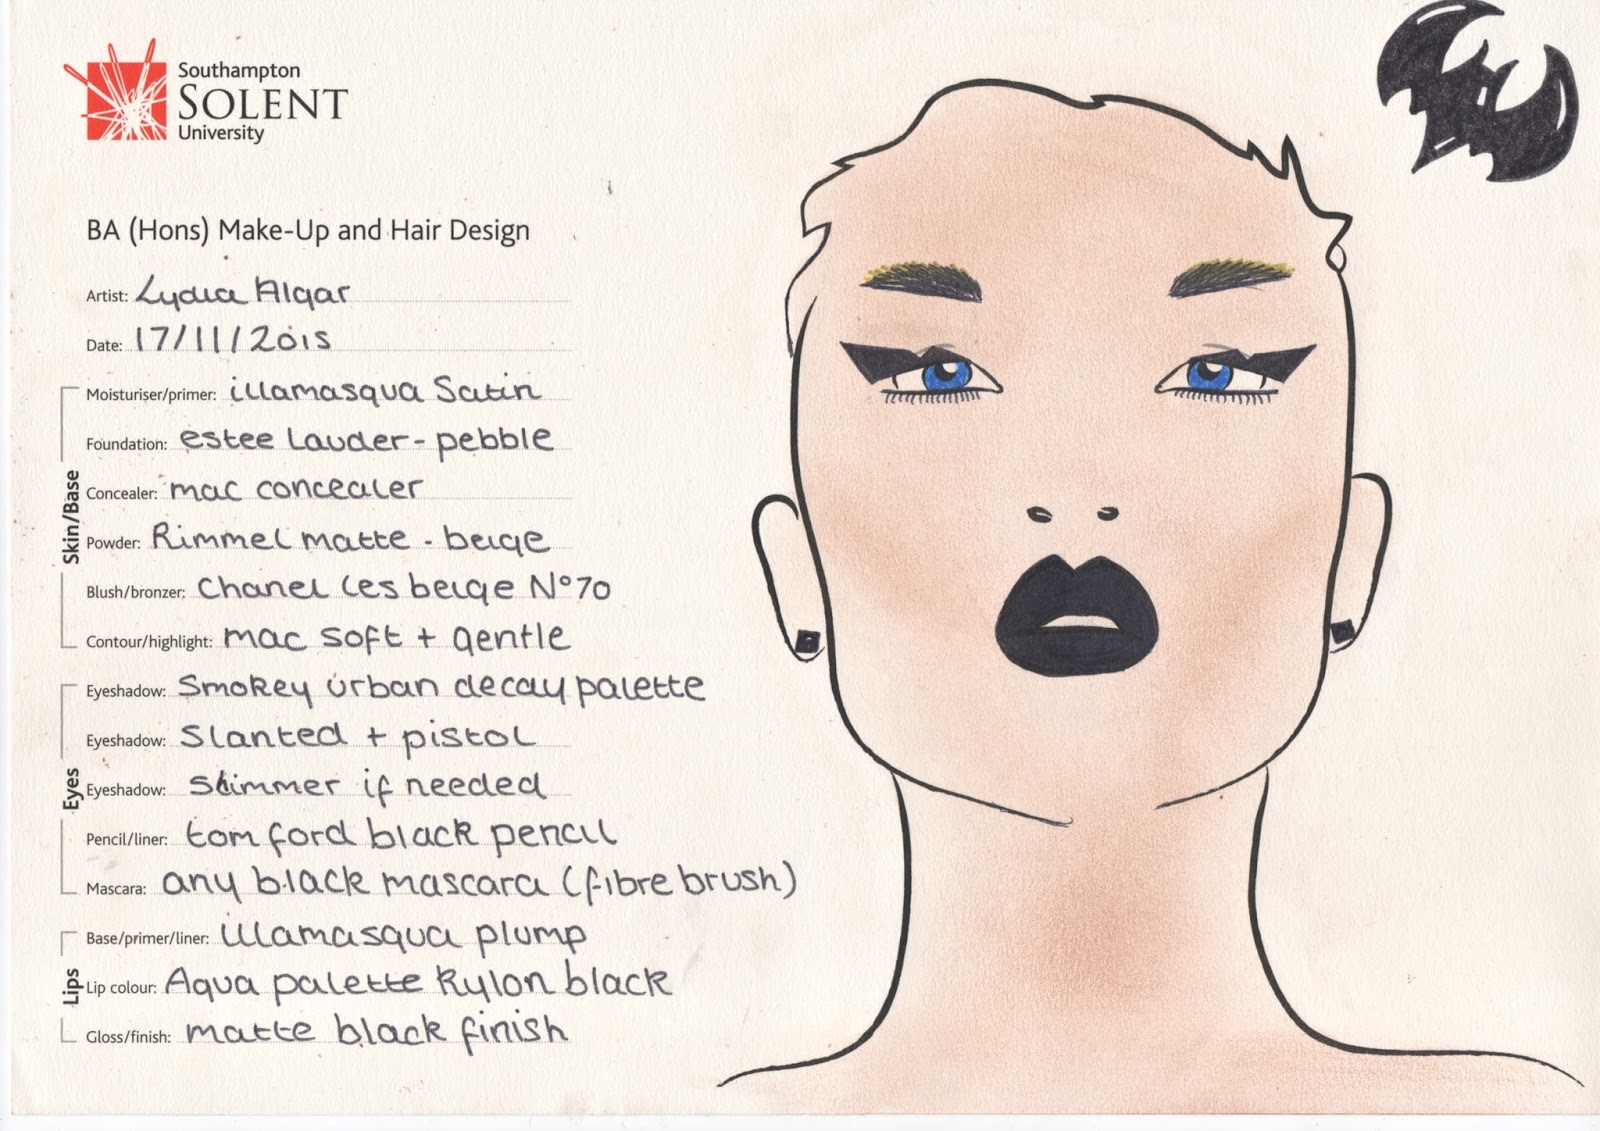 Southampton
SOLENT
University
BA (Hons) Make-Up and Hair Design
Artist: Lydia Algar
Date: 17/11/2015
Skin/Base
Moisturiser/primer: illamasqua Satin
Foundation: estee Lauder - pebble
Concealer: mac concealer
Powder: Rimmel matte - beige
Blush/bronzer: Chanel les beige Nº70
Contour/highlight: mac soft + gentle
Eyes
Eyeshadow: Smokey urban decay palette
Eyeshadow: Slanted + pistol
Eyeshadow: Shimmer if needed
Pencil/liner: tom ford black pencil
Mascara: any black mascara (fibre brush)
Lips
Base/primer/liner: illamasqua plump
Lip colour: Aqua palette Kylon black
Gloss/finish: matte black finish